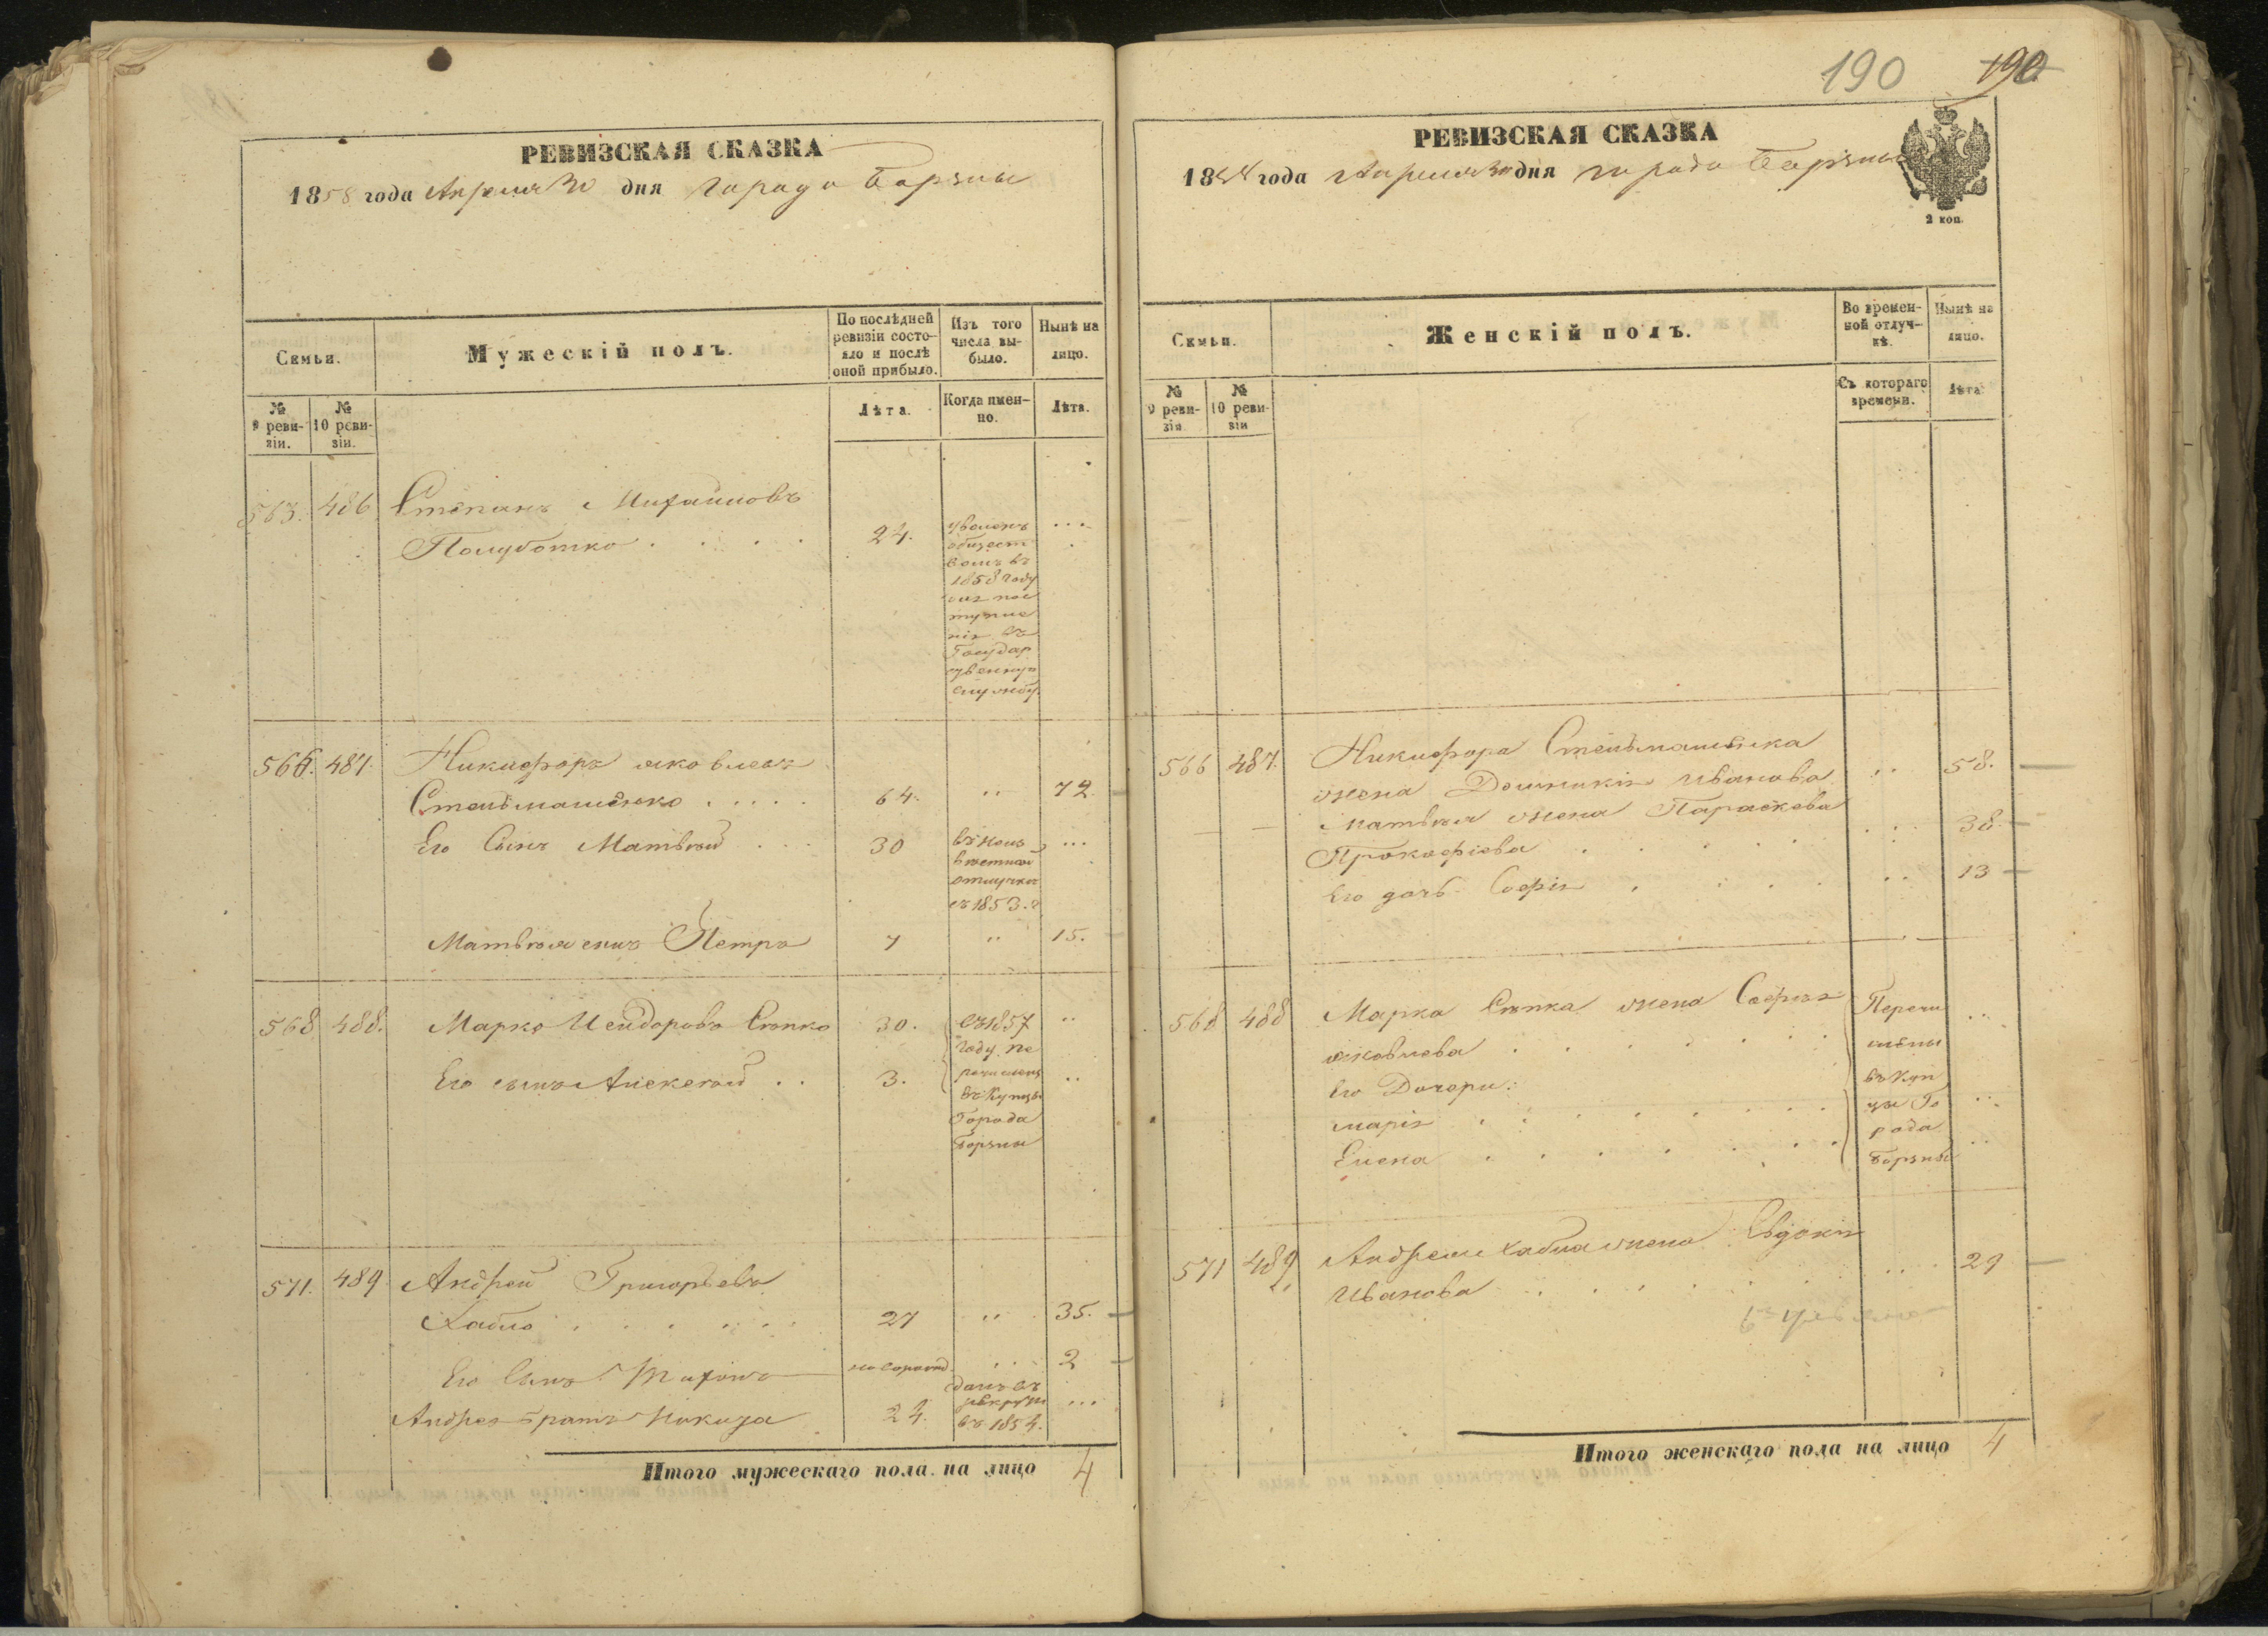 РЕВИЗСКАЯ СКАЗКА
1858 года Апреля 30 дня города Борзны
Семьи.
Мужескій полъ.
По послѣдней
ревизіи состо-
яло и послѣ
оной прибыло.
Изъ того
числа вы-
было.
Нынѣ на
лицо.
№
9 реви-
зіи.
№
10 реви-
зіи.
Лѣта.
Когда имен-
но.
Лѣта.
563. 486 Степанъ Михайловъ
Полуботко . . . . 24. ...
уволенъ
общест
вомъ въ
1858 году
для пос
тупле
нія въ
Государ
ственную
службу
566. 487. Никифоръ Яковлевъ
Стельмашенко . . . . . 64. " 72.
Его Сынъ Матвѣй . . . 30 ...
отлучкѣ
съ 1853. г
Матвѣя сынъ Петръ 7 " 15.
568 488. Марко Исидоровъ Сѣпко 30. "
Его сынъ Алексѣй . . 3. "
съ 1857
году пе
речислены
въ Купцы
Города
Борзны
571. 489 Андрей Григорьевъ
Хабло . . . . . . 27 " 35.
Его Сынъ Тихонъ новорожд. . . 2
Андрея братъ Никита 24. ...
данъ въ
рекруты
въ 1854.
Итого мужескаго пола на лицо 4
190 190
РЕВИЗСКАЯ СКАЗКА
1858 года Апреля 30 дня города Борзны
2 коп.
Семьи.
Женскій полъ.
Во времен-
ной отлуч-
кѣ.
Нынѣ на
лицо.
№
9 реви-
зіи
№
10 реви-
зіи
Съ котораго
времени.
Лѣта
566 487. Никифора Стельмашенка
жена Домникія Иванова . . 58.
Матвѣя жена Параскева
Прокофіева . . . . . . . 38.
Его дочь Софія . . . . . . 13
568 488 Марка Сѣпка жена Софія
Яковлева . . . . . . .
Его Дочери:
Марія . . . . . . . .
Елена . . . . . . .
Перечи
слены
въ Куп
цы Го
рода
Борзны
571 489 Андрея Хабла жена Евдокія
Иванова . . . . . . . . 29
Итого женскаго пола на лицо 4